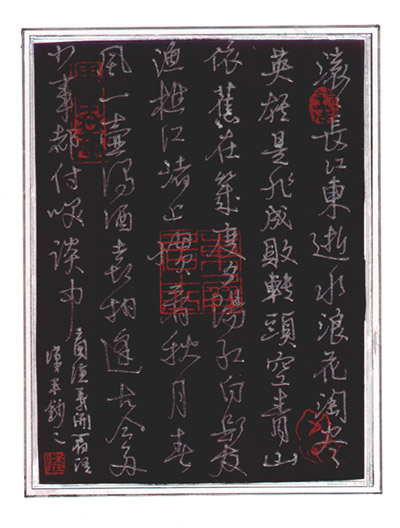 滚長江東逝水浪花淘尽
英雄是非成敗轉頭空青山
依舊在幾度夕陽紅白髮
漁樵江渚上慣看秋月春
風一壺濁酒喜相逢古今多
少事都付咲談中